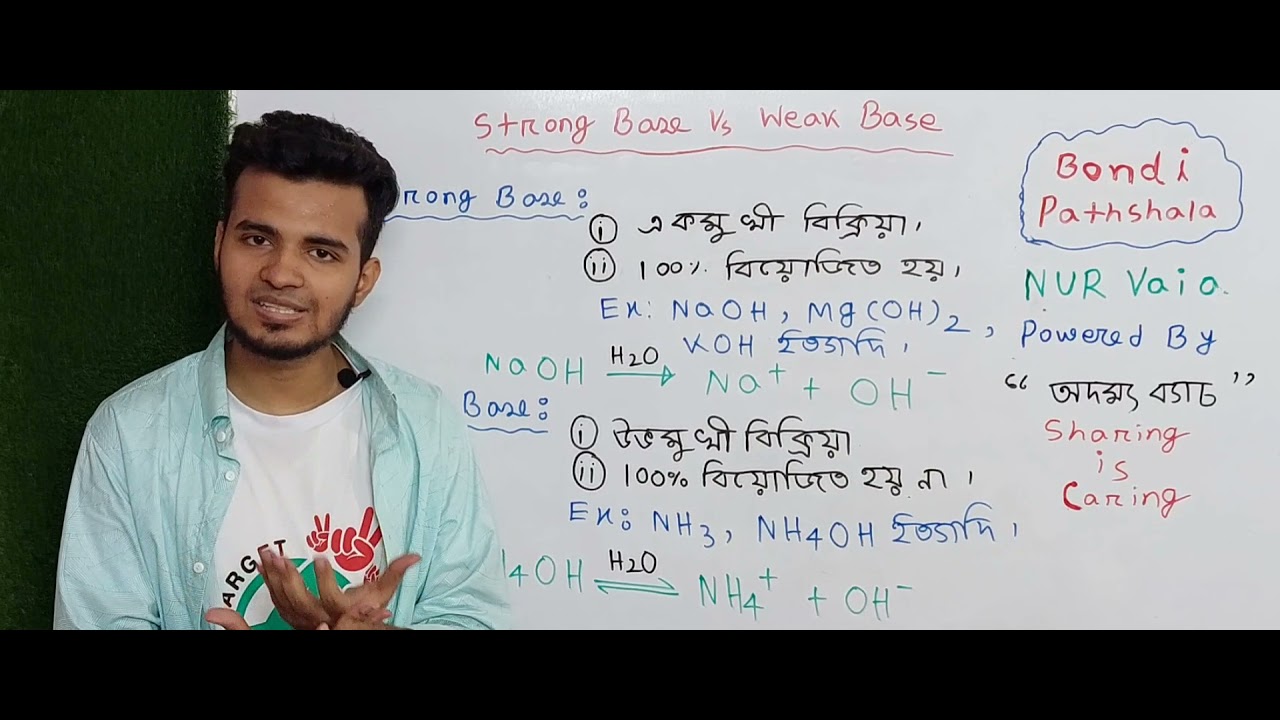 Strong Base Vs Weak Base
rong Base:
i একমুখী বিক্রিয়া,
ii 100% বিয়োজিত হয়।
Ex: NaOH, Mg(OH)2,
KOH ইত্যাদি।
NaOH H2O → Na+ + OH-
Base:
i উভমুখী বিক্রিয়া
ii 100% বিয়োজিত হয় না।
Ex: NH3, NH4OH ইত্যাদি।
4OH H2O ⇌ NH4+ + OH-
Bondi
Pathshala
NUR Vaia.
Powered By
“অদম্য ব্যাচ”
Sharing
is
Caring
ARGET